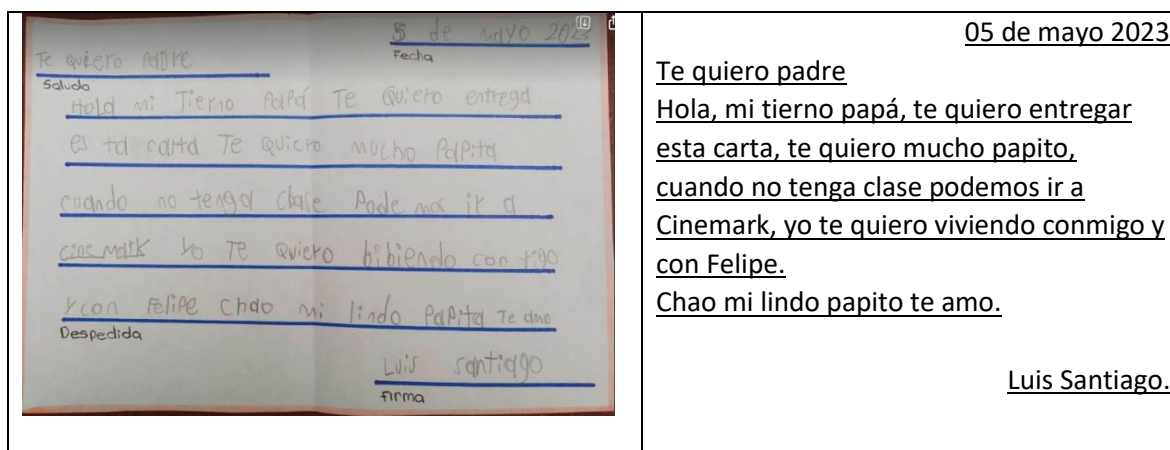 5 de mayo 2023
Fecha
Te quiero PADRE
Saludo
Hola mi Tierno PaPá Te Quiero entrega
es ta carta Te quiero mucho PaPita
cuando no tenga clase Pode mos ir a
cine Mark yo Te Quiero bibiendo con tigo
y con Felipe chao mi lindo PaPita Te amo
Despedida
Luis santiago
firma
05 de mayo 2023
Te quiero padre
Hola, mi tierno papá, te quiero entregar
esta carta, te quiero mucho papito,
cuando no tenga clase podemos ir a
Cinemark, yo te quiero viviendo conmigo y
con Felipe.
Chao mi lindo papito te amo.
Luis Santiago.